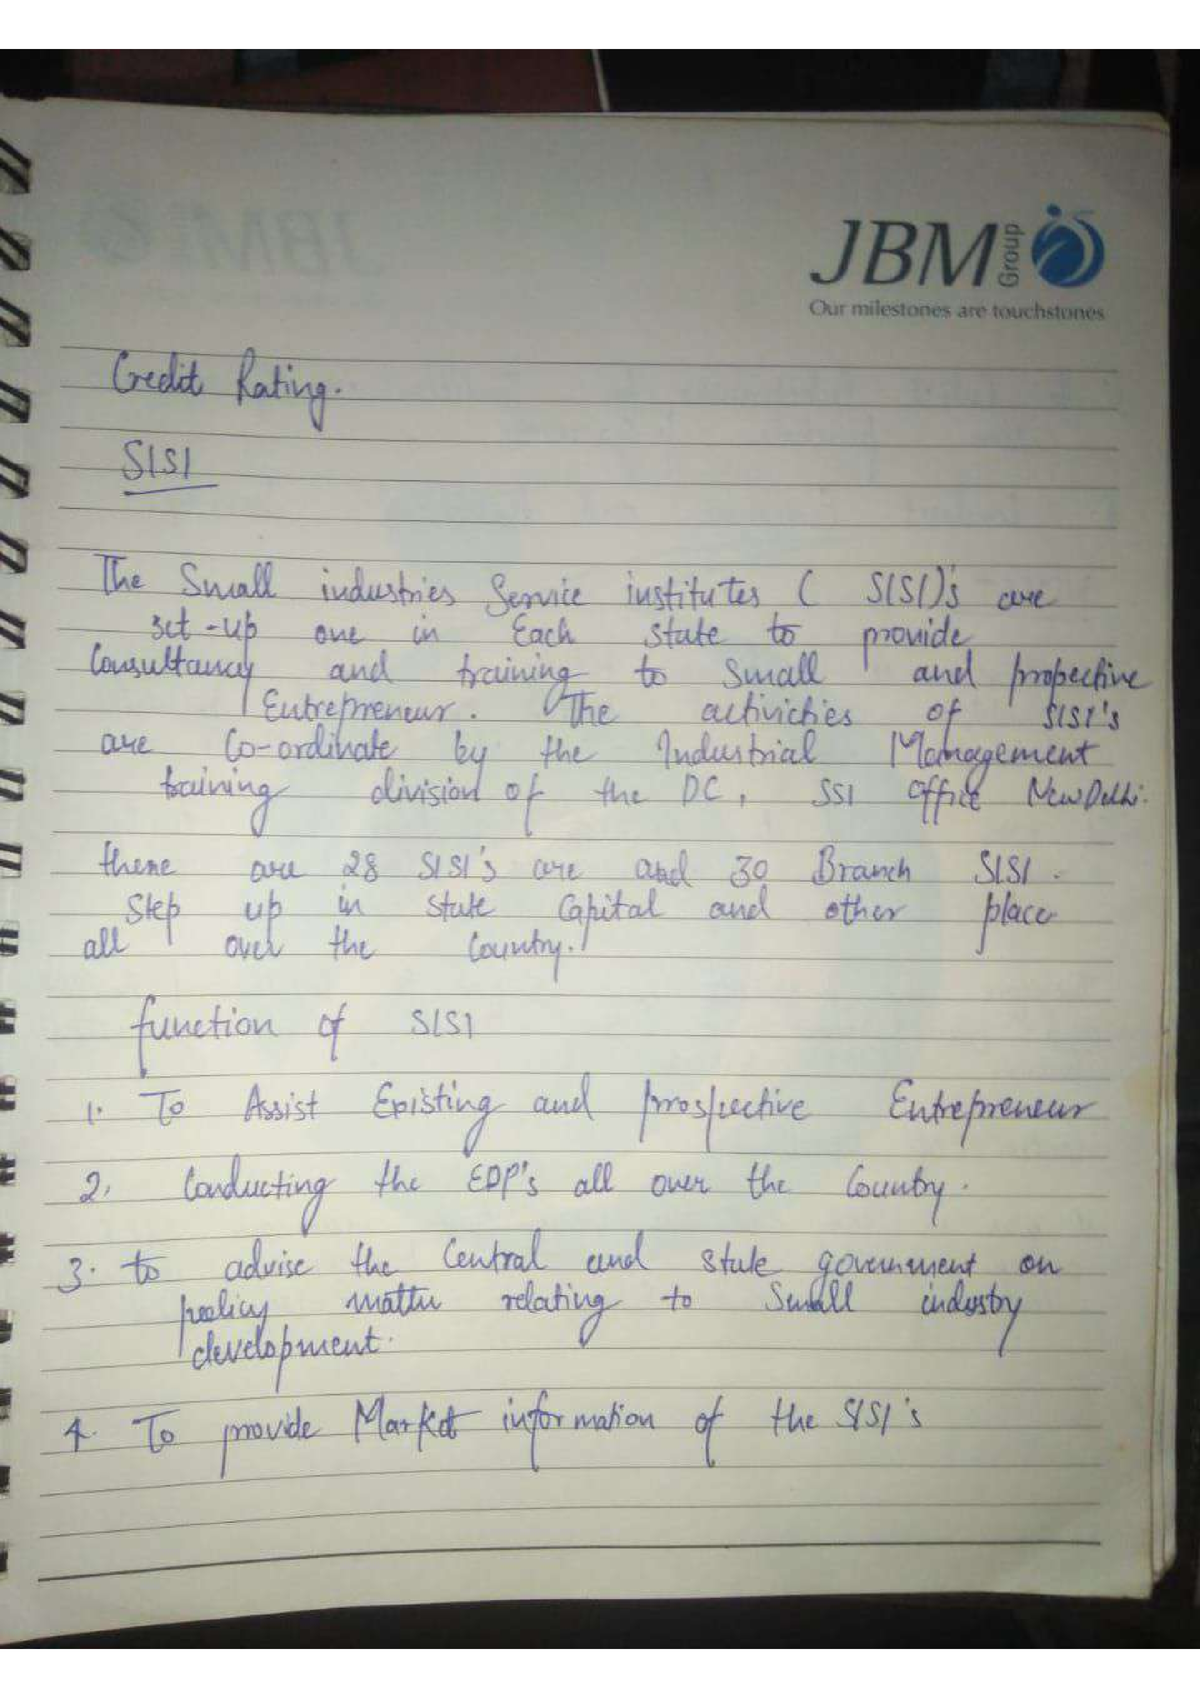 JBM Group
Our milestones are touchstones
Credit Rating.
SISI
The Small industries Service institutes ( SISI)'s are
set-up one in Each state to provide
Consultancy and training to Small and propective
Entrepreneur. The activicties of SISI's
are Co-ordinate by the Industrial Management
training division of the DC, SSI office New Delhi.
there are 28 SISI's are and 30 Branch SISI.
Step up in state Capital and other place
all over the Country.
function of SISI
1. To Assist Existing and prospective Entrepreneur
2. Conducting the EDP's all over the Country.
3. to advise the Central and state government on
policy matter relating to Small industry
development.
4. To provide Market information of the SISI's